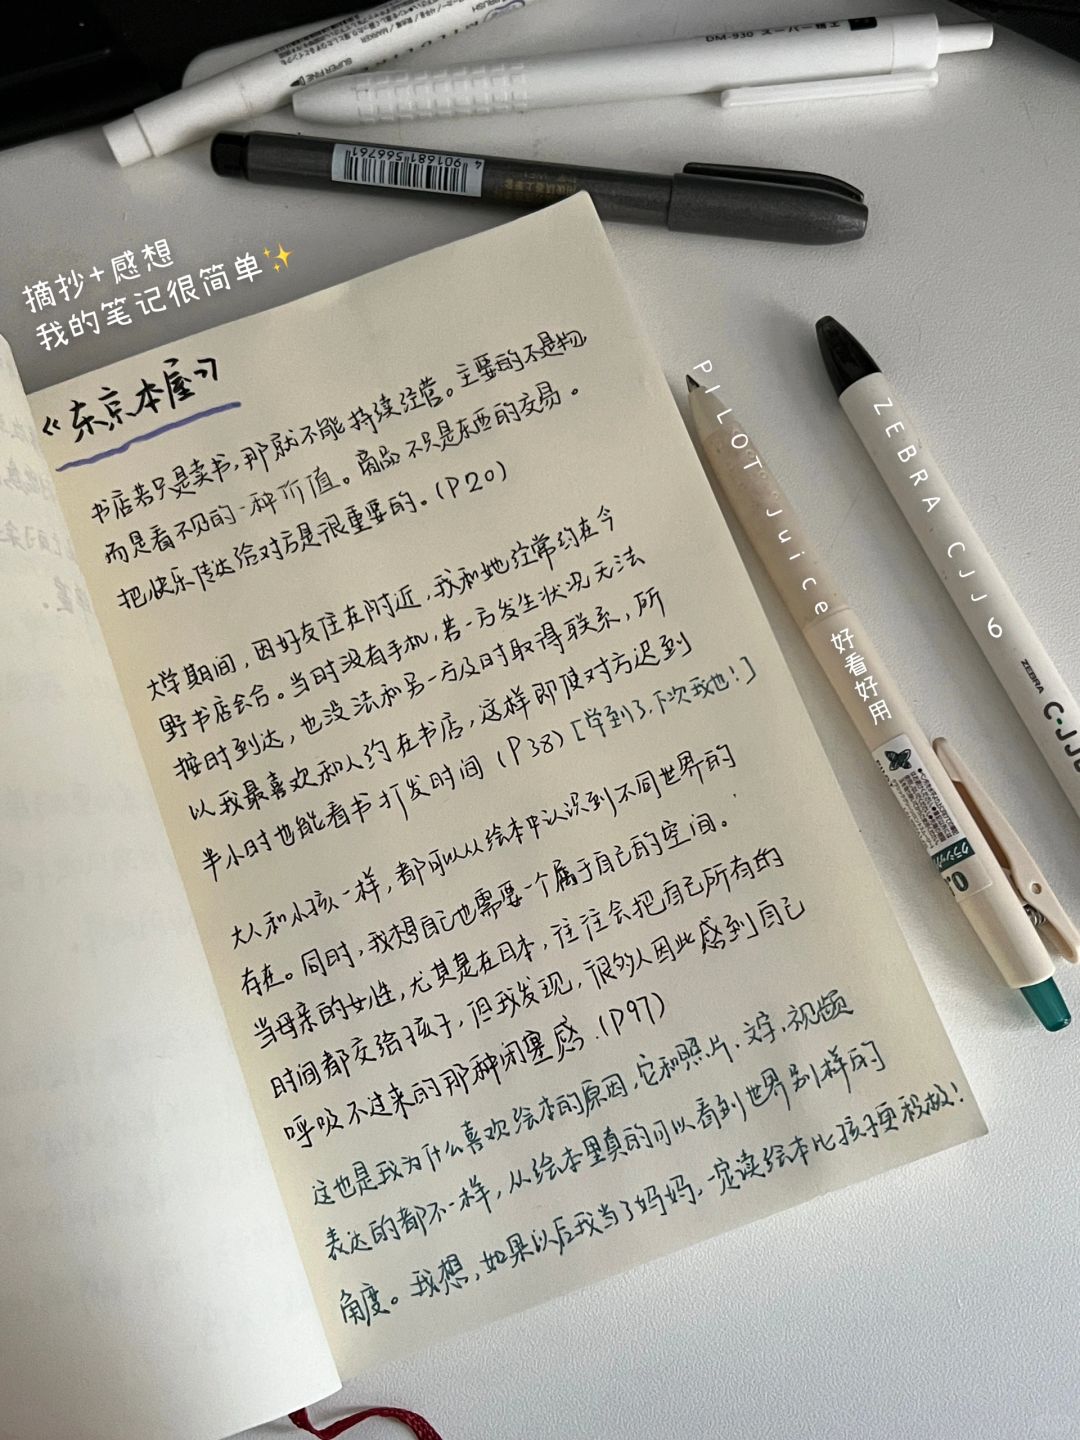 SUPER FINE
MARKER
DM-930 スーパー細工
4901681566761
摘抄+感想
我的笔记很简单✨
《东京本屋》
书店若只是卖书，那就不能持续经营。主要的不是物
而是看不见的一种价值。商品不只是东西的交易。
把快乐传达给对方是很重要的。(P20)
大学期间，因好友住在附近，我和她经常约在今
野书店会合。当时没有手机，若一方发生状况无法
按时到达，也没法和另一方及时取得联系，所
以我最喜欢和人约在书店，这样即使对方迟到
半小时也能看书打发时间(P38)[学到了，下次我也！]
大人和小孩一样，都可以从绘本中认识到不同世界的
存在。同时，我想自己也需要一个属于自己的空间。
当母亲的女性，尤其是在日本，往往会把自己所有的
时间都交给孩子，但我发现，很多人因此感到自己
呼吸不过来的那种闭塞感.(P97)
这也是我为什么喜欢绘本的原因，它和照片、文字、视频
表达的都不一样，从绘本里真的可以看到世界别样的
角度。我想，如果以后我当了妈妈，一定读绘本比孩子更积极！
PILOT Juice 好看好用
ZEBRA CJJ6
ZEBRA
C·JJ
クラシック
0.